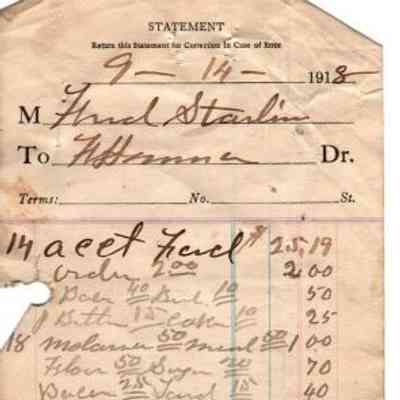 STATEMENT
Return this Statement for Correction in Case of Error
9 - 14 - 1918
M Fred Starlin
To Dr.
Terms: No. St.
14 acct Ford $ 25,19
order 2.00 2 00
40 10 50
Butter 15 cakes 10 25
18 molasses 50 meal 50 1 00
Flour 50 Sugar 20 70
Bacon 25 Lard 15 40